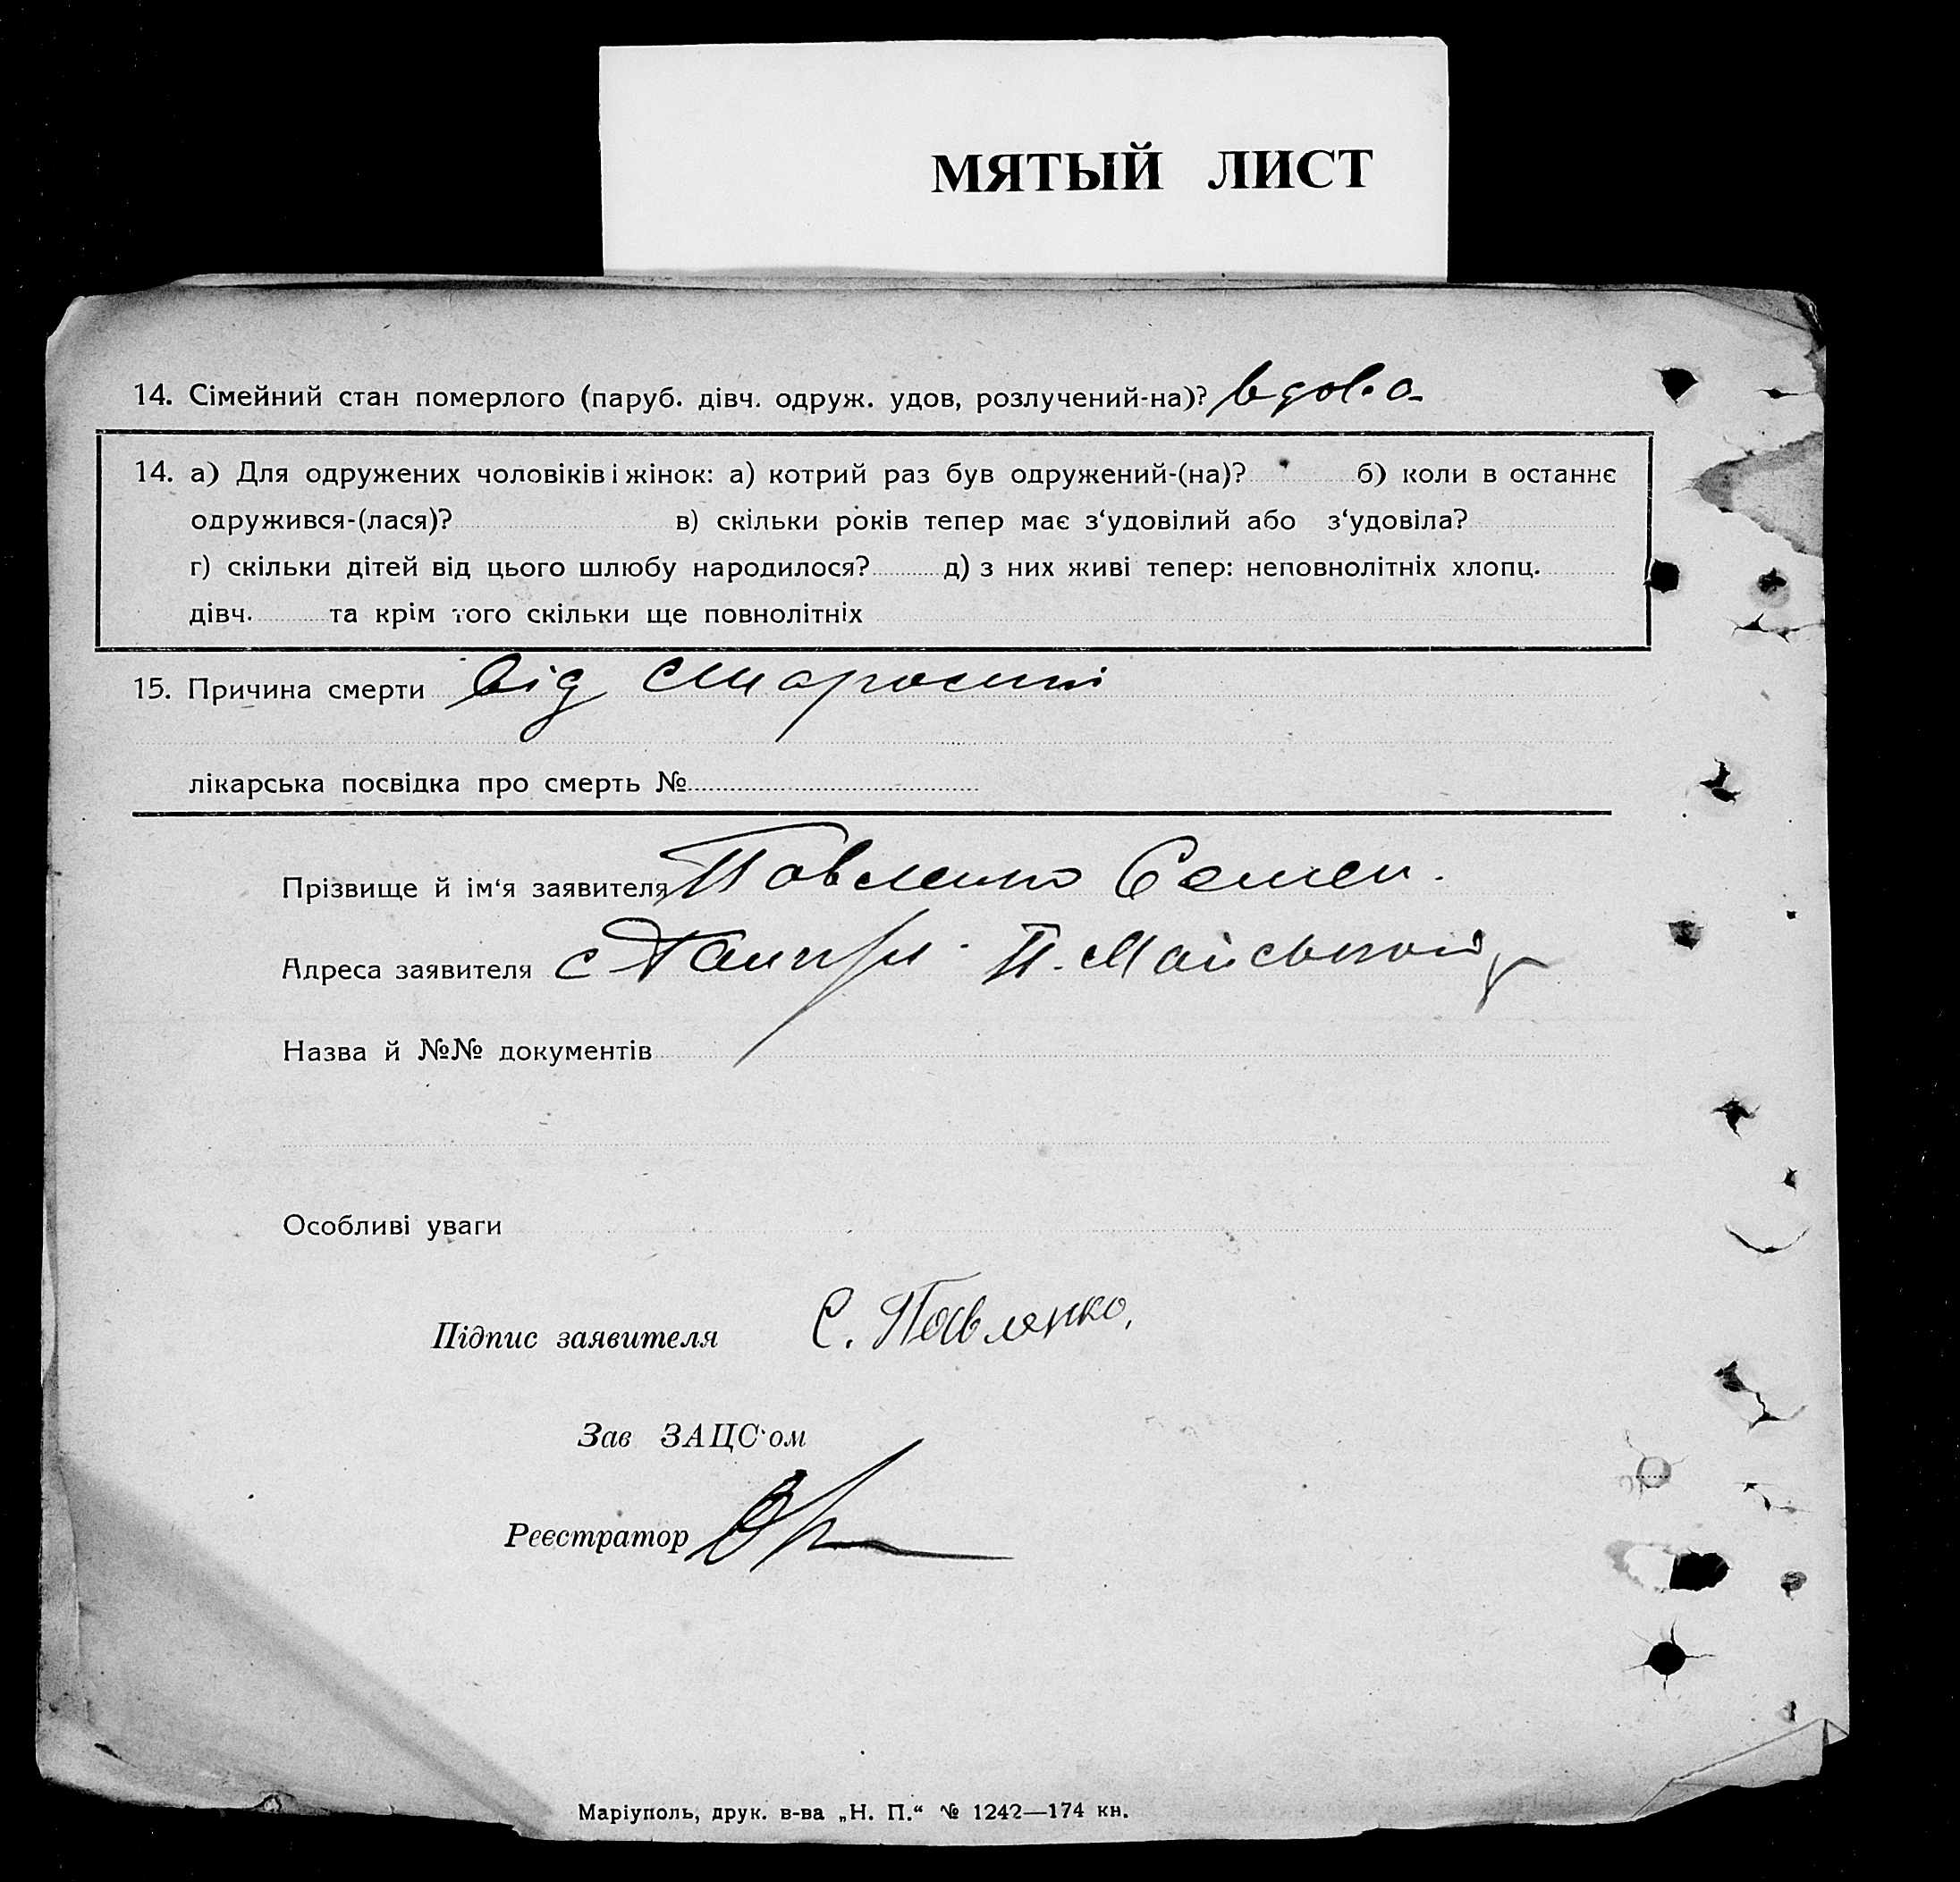 МЯТЫЙ ЛИСТ
14. Сімейний стан померлого (паруб. дівч. одруж. удов, розлучений-на)? вдова
14. а) Для одружених чоловіків і жінок: а) котрий раз був одружений-(на)? б) коли в останнє
одружився-(лася)? в) скільки років тепер має з‘удовілий або з‘удовіла?
г) скільки дітей від цього шлюбу народилося? д) з них живі тепер: неповнолітніх хлопц.
дівч. та крім того скільки ще повнолітніх
15. Причина смерти від старости
лікарська посвідка про смерть №
Прізвище й ім‘я заявителя Павленко Семен.
Адреса заявителя с П.
Назва й №№ документів
Особливі уваги
Підпис заявителя С. Павленко,
Зав ЗАЦС‘ом
Реєстратор
Маріуполь, друк. в-ва „Н. П.“ № 1242—174 кн.